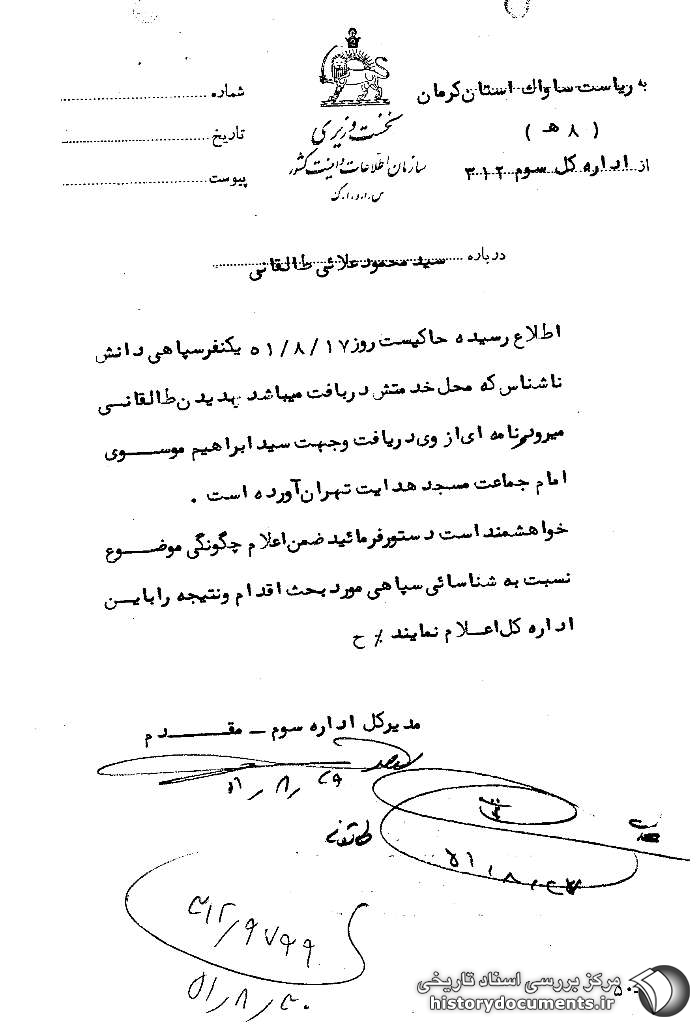 به ریاست ساواك استان کرمان
( ۸ هـ )
از اداره کل سوم ۳۱۲
نخست وزیری
سازمان اطلاعات و امنیت کشور
س.ا.و.ا.ک
شماره
تاریخ
پیوست
درباره سید محمود علائی طالقانی
اطلاع رسیده حاکیست روز ۵۱/۸/۱۷ یکنفر سپاهی دانش
ناشناس که محل خدمتش در بافت میباشد بدیدن طالقانی
میرود و نامه ای از وی دریافت وجهت سید ابراهیم موسوی
امام جماعت مسجد هدایت تهران آورده است .
خواهشمند است دستور فرمائید ضمن اعلام چگونگی موضوع
نسبت به شناسائی سپاهی مورد بحث اقدام و نتیجه را باین
اداره کل اعلام نمایند ٪ ح
مدیرکل اداره سوم ـ مقدم
۳۱۲/۹۷۹۹
۵۱/۸/۳۰
مرکز بررسی اسناد تاریخی
historydocuments.ir